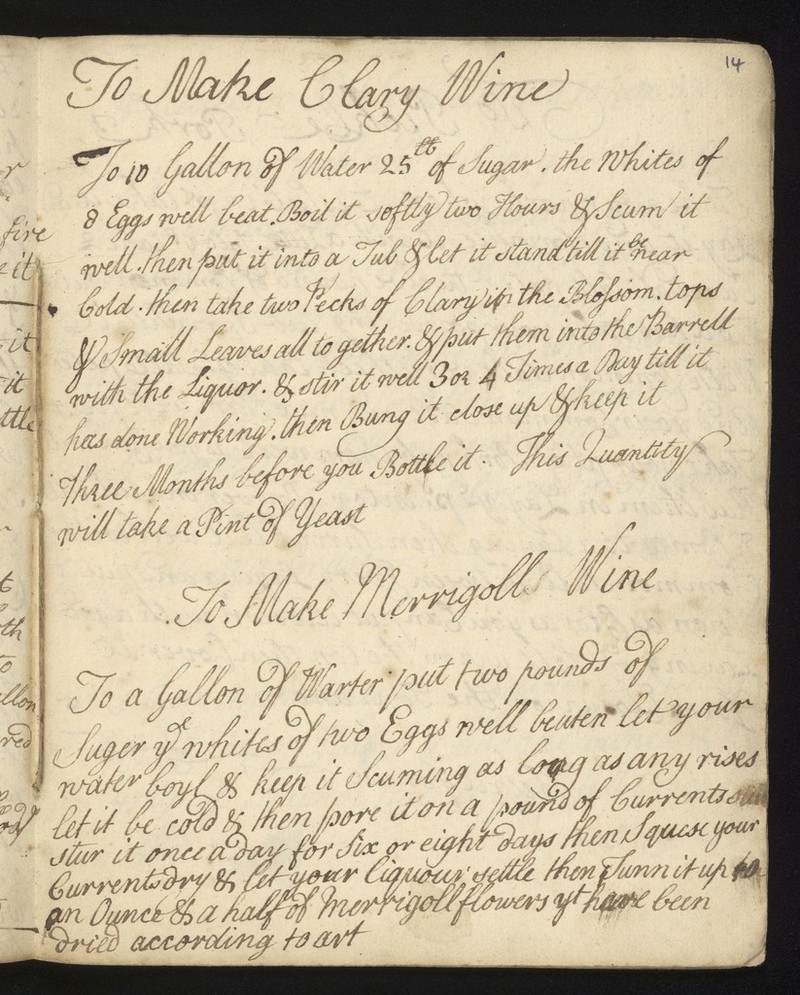 14
To Make Clary Wine
To 10 Gallon of Water 25tt of Sugar. the Whites of
8 Eggs well beat. Boil it softly two Hours & Scum it
well. then put it into a Tub & let it stand till it be near
Cold. then take two Pecks of Clary in the Blossom. tops
& Small Leaves all to gether. & put them into the Barrell
with the Liquor. & stir it well 3 or 4 Times a Day till it
has done Working. then Bung it close up & keep it
Three Months before you Bottle it. This Quantity
will take a Pint of Yeast
To Make Merrigoll Wine
To a Gallon of Warter put two pounds of
Suger ye whites of two Eggs well beuten let your
water boyl & keep it Scuming as long as any rises
let it be cold & then pore it on a pound of Currents
stur it once a day for Six or eight days then Squese your
Currents dry & let your liquour settle then Tunn it up to
an Ounce & a half of Merrigoll flowers yt have been
dried according to art
fire
it
it
it
ttle
th
allon
red